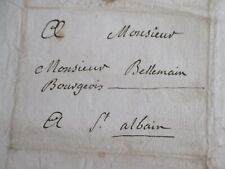 A Monsieur
Monsieur Bellemain
Bourgeois
A St albain